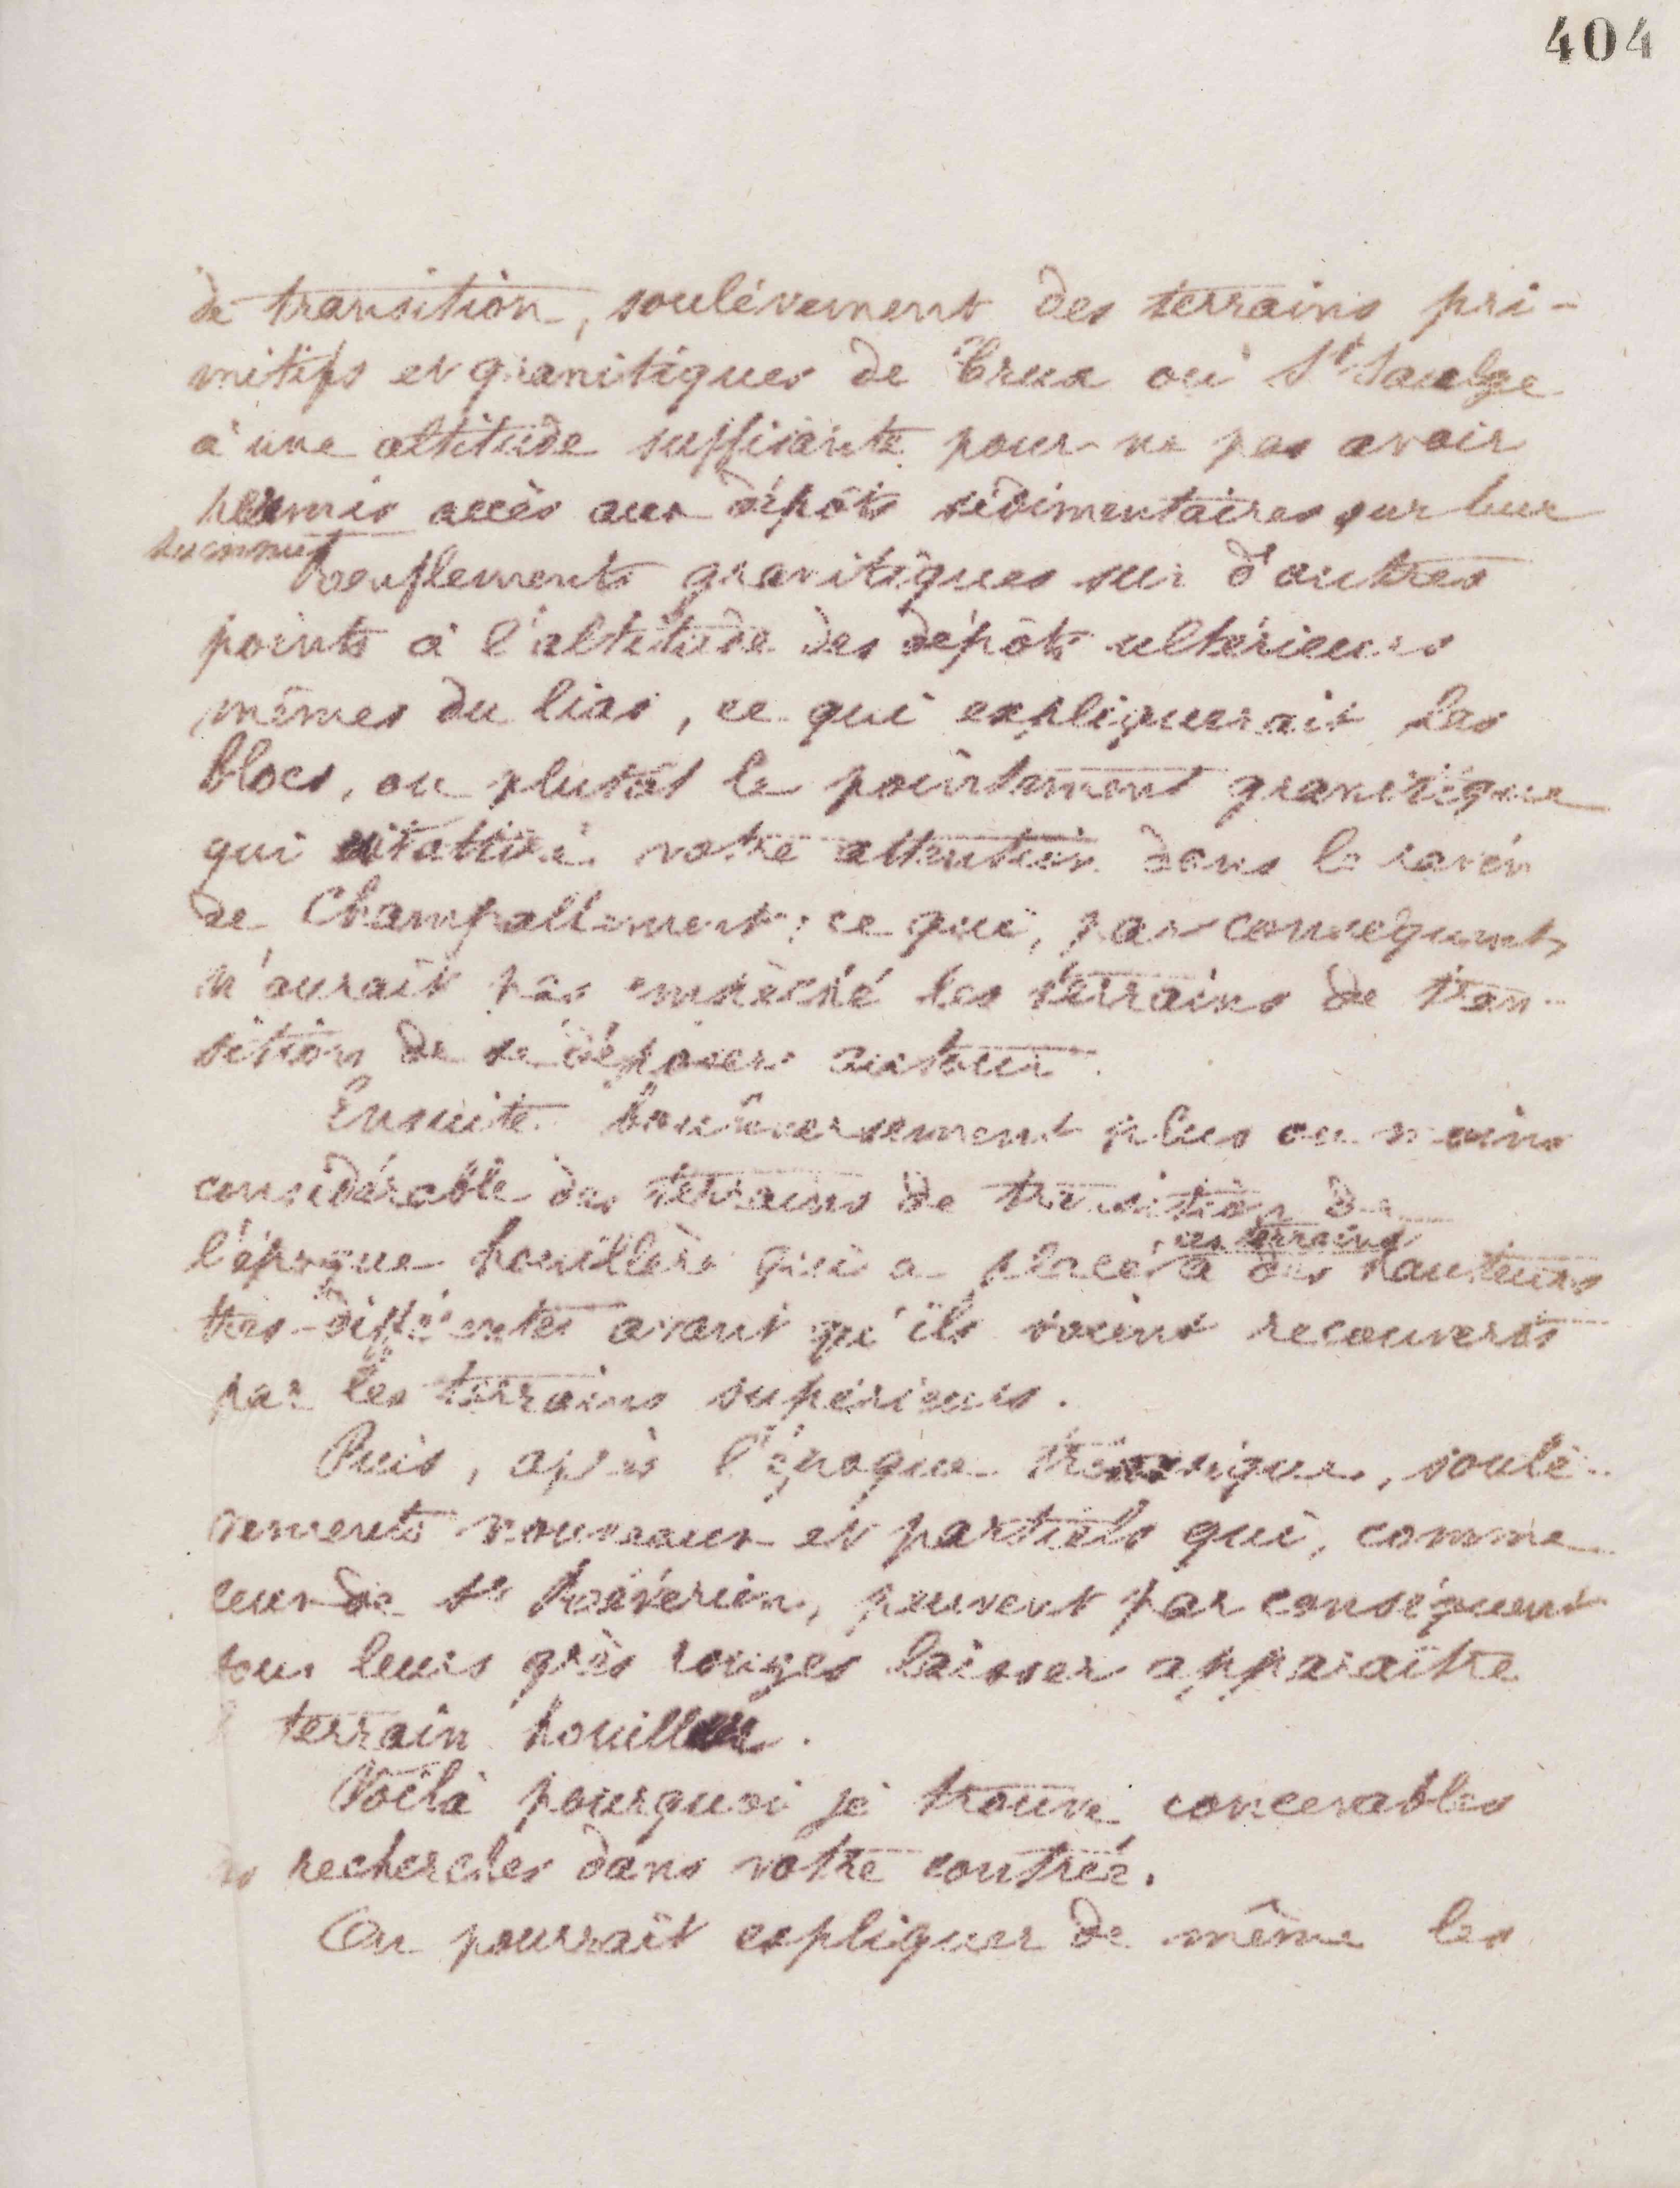 404
de transition, soulèvement des terrains pri-
mitifs et granitiques de Crux ou St Saulge
à une altitude suffisante pour ne pas avoir
permis accès aux dépôts sédimentaires sur leur
sommet
Renflements granitiques sur d'autres
points à l'altitude des dépôts ultérieurs
mêmes du lias, ce qui expliquerait les
blocs, ou plutôt le pointement granitique
qui ait attiré votre attention dans le ravin
de Champallement ; ce qui, par conséquent,
n'aurait pas empêché les terrains de tran-
sition de se déposer autour.
Ensuite bouleversement plus ou moins
considérable des terrains de transition de
l'époque houillère qui a placé ces terrains à des hauteurs
très-différentes avant qu'ils soient recouverts
par les terrains supérieurs.
Puis, après l'époque triasique, soulè-
vements nouveaux et partiels qui, comme
ceux de St Révérien, peuvent par conséquent
sous leurs grès rouges laisser apparaître
terrain houiller.
Voilà pourquoi je trouve concevables
recherches dans votre contrée.
On pourrait expliquer de même les